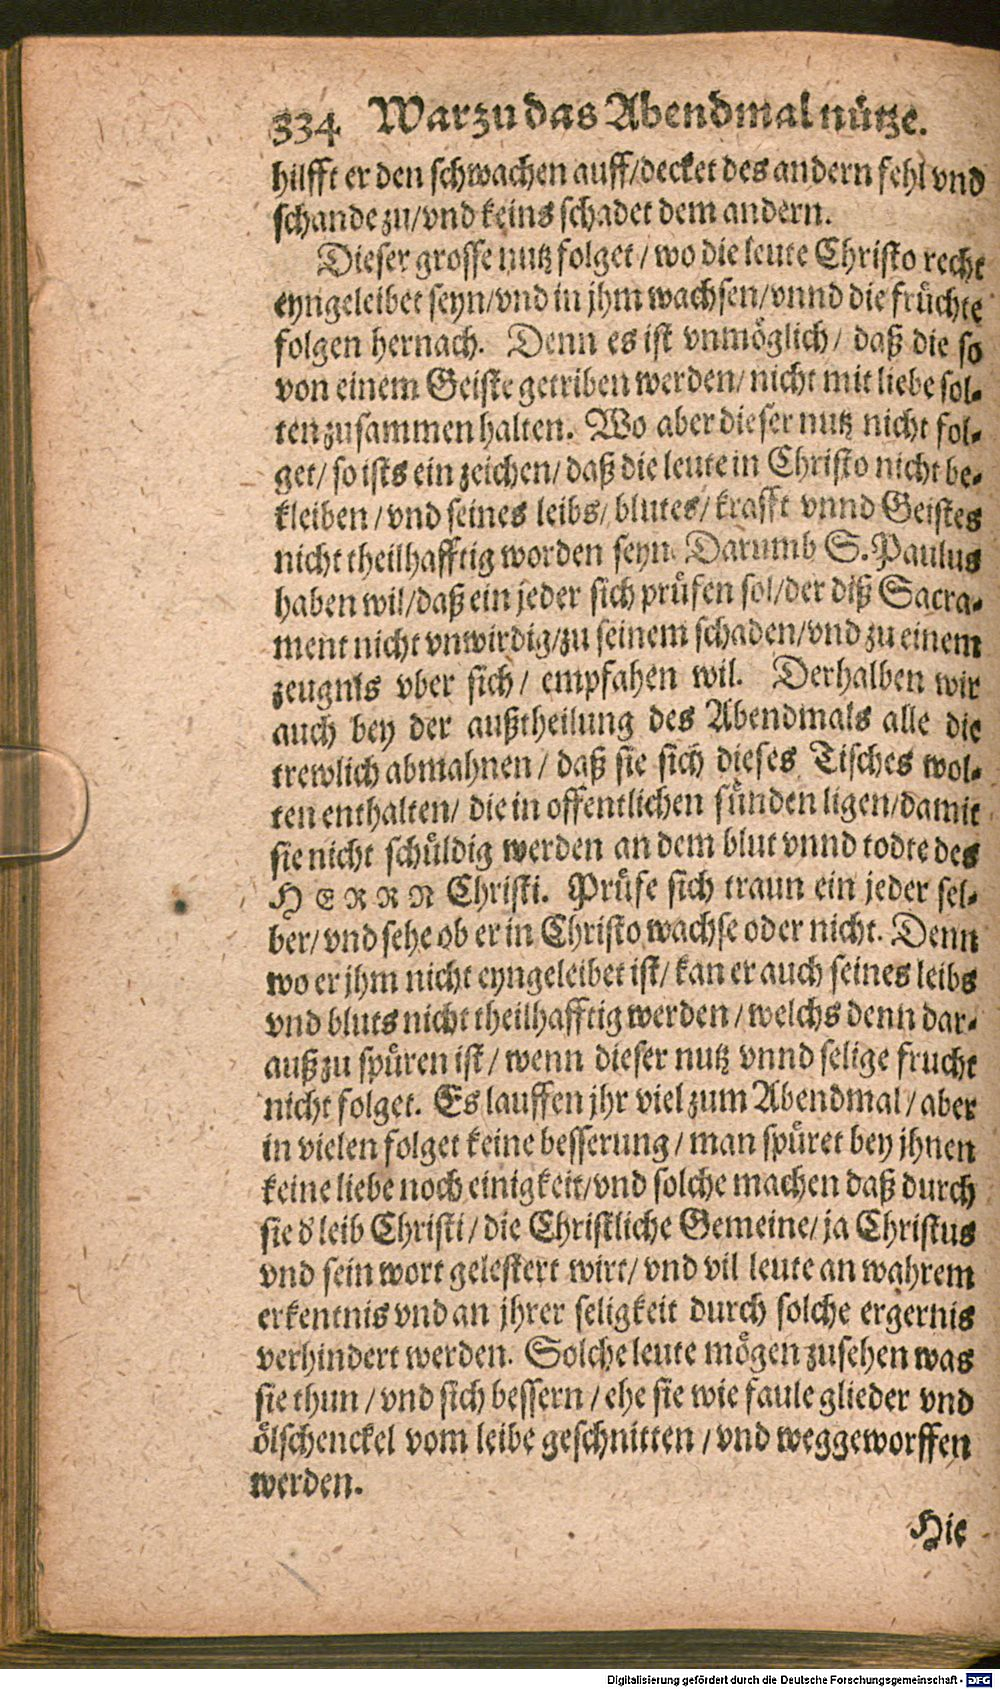 334 Warzu das Abendmal nütze.
hilfft er den schwachen auff/decket des andern fehl vnd
schande zu/vnd keins schadet dem andern.
Dieser grosse nutz folget / wo die leute Christo recht
eyngeleibet seyn/vnd in jhm wachsen/vnnd die früchte
folgen hernach. Denn es ist vnmöglich/ daß die so
von einem Geiste getriben werden/ nicht mit liebe sol-
ten zusammen halten. Wo aber dieser nutz nicht fol-
get/ so ists ein zeichen/ daß die leute in Christo nicht be-
kleiben /vnd seines leibs/ blutes/ krafft vnnd Geistes
nicht theilhafftig worden seyn. Darumb S. Paulus
haben wil/daß ein jeder sich prüfen sol/der diß Sacra-
ment nicht vnwirdig/zu seinem schaden/vnd zu einem
zeugnis vber sich/ empfahen wil. Derhalben wir
auch bey der außtheilung des Abendmals alle die
trewlich abmahnen / daß sie sich dieses Tisches wol-
ten enthalten/ die in offentlichen sünden ligen/damit
sie nicht schüldig werden an dem blut vnnd todte des
HERRN Christi. Prüfe sich traun ein jeder sel-
ber/ vnd sehe ob er in Christo wachse oder nicht. Denn
wo er jhm nicht eyngeleibet ist/ kan er auch seines leibs
vnd bluts nicht theilhafftig werden / welchs denn dar-
auß zu spüren ist/ wenn dieser nutz vnnd selige frucht
nicht folget. Es lauffen jhr viel zum Abendmal / aber
in vielen folget keine besserung / man spüret bey jhnen
keine liebe noch einigkeit/vnd solche machen daß durch
sie d' leib Christi / die Christliche Gemeine/ ja Christus
vnd sein wort gelestert wirt/ vnd vil leute an wahrem
erkentnis vnd an jhrer seligkeit durch solche ergernis
verhindert werden. Solche leute mögen zusehen was
sie thun / vnd sich bessern / ehe sie wie faule glieder vnd
ölschenckel vom leibe geschnitten / vnd weggeworffen
werden.
Hie
Digitalisierung gefördert durch die Deutsche Forschungsgemeinschaft - DFG